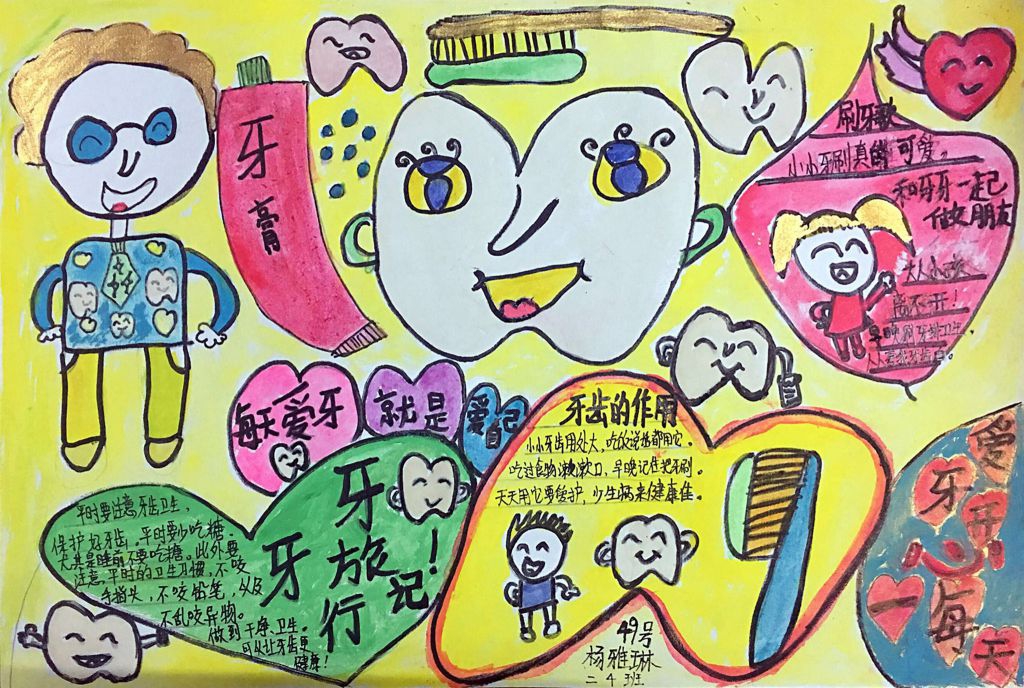 牙膏
刷牙歌
小小牙刷真的可爱。
和牙牙一起
做好朋友
大人小孩
离不开！
早晚刷牙讲卫生，
每天爱牙
就是
爱自己
牙齿的作用
小小牙齿用处大，吃饭说话都用它。
吃过食物漱漱口，早晚记住把牙刷。
天天用它要爱护，少生病来健康佳。
平时要注意牙齿卫生，
保护好牙齿。平时要少吃糖，
尤其是睡前不要吃糖。此外要
注意平时的卫生习惯，不咬
手指头，不咬铅笔，以及
不乱咬异物。
做到干净、卫生。
可以让牙齿更
健康！
牙牙旅行记！
爱牙
开心
每一天
49号
杨雅琳
二4班